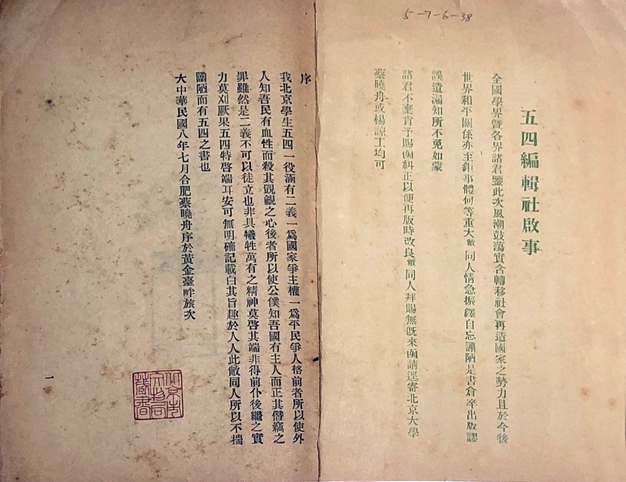 5-7-6-38
五四編輯社啟事
全國學界暨各界諸君鑒此次風潮鼓蕩實含轉移社會再造國家之勢力且於今後
世界和平關係亦主鉅事體何等重大敝同人情急振鐸自忘譾陋是書倉卒出版謬
誤遺漏知所不免如蒙
諸君不棄肯予賜函糾正以便再版時改良敝同人拜賜無旣來函請逕寄北京大學
蔡曉舟或楊諒工均可
序
我北京學生五四一役滿有二義一爲國家爭主權一爲平民爭人格前者所以使外
人知吾民有血性而殺其覬覦之心後者所以使公僕知吾國有主人而正其僭竊之
罪雖然是二義不可以徒立也非具犧牲萬有之精神莫啓其端非得前仆後繼之實
力莫刈厥果五四特啓端耳安可無明確記載白其旨趣於人人此敝同人所以不揣
譾陋而有五四之書也
大中華民國八年七月合肥蔡曉舟序於黃金臺畔旅次
一